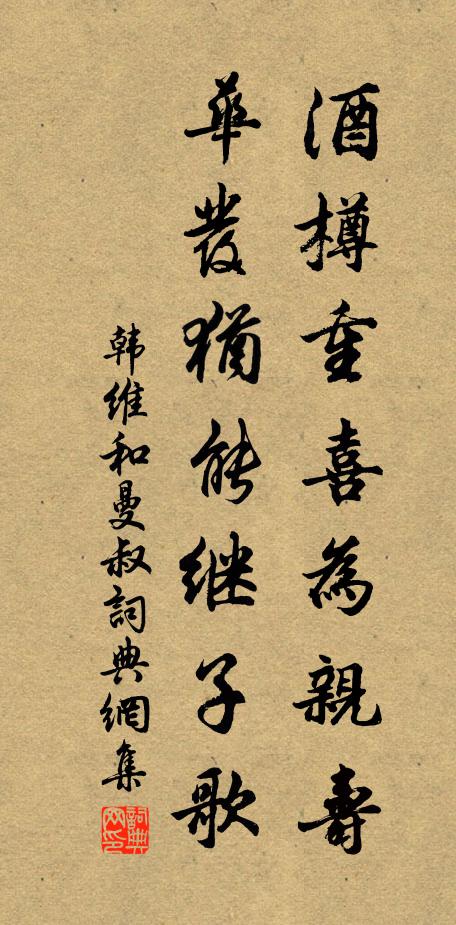 酒樽重喜為親壽
華發猶能继子歌
韩维和曼叔詞典網集
詞典网印